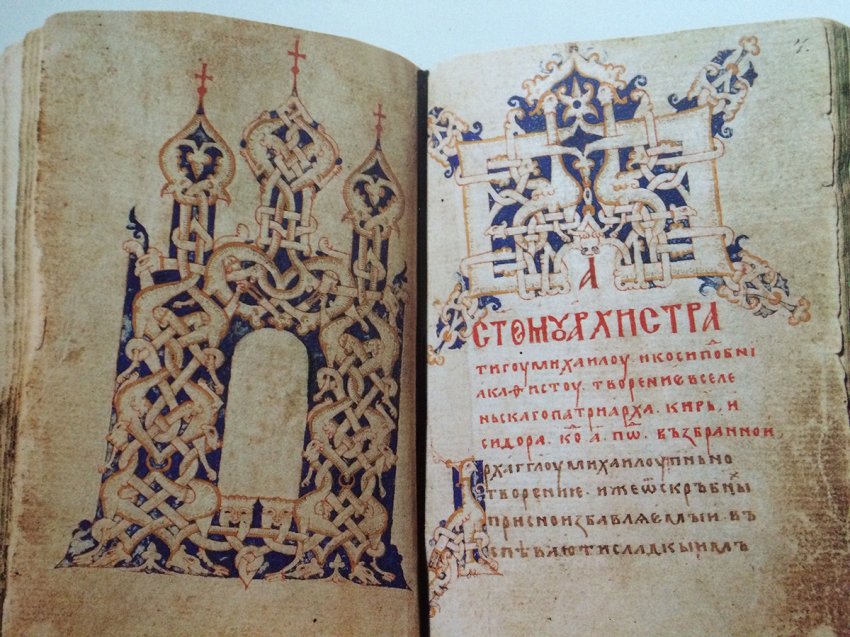 А
СТОМꙊАРХИСТРА
тигоумиха́илоу . и ко́си по́бⷩі
ака́ѳистоу . творенїе вселе
ньскаго патрїарха . ки́рь , и
сидора . ко҃ а҃ . пѿ . възбра́нной ,
рха́гг҃лоу миха́илоу пѣно
творе́нїе . и́же ѿ скръбны́
присно избавляемы́и . въ
спѣваю́ти сладкы́имъ